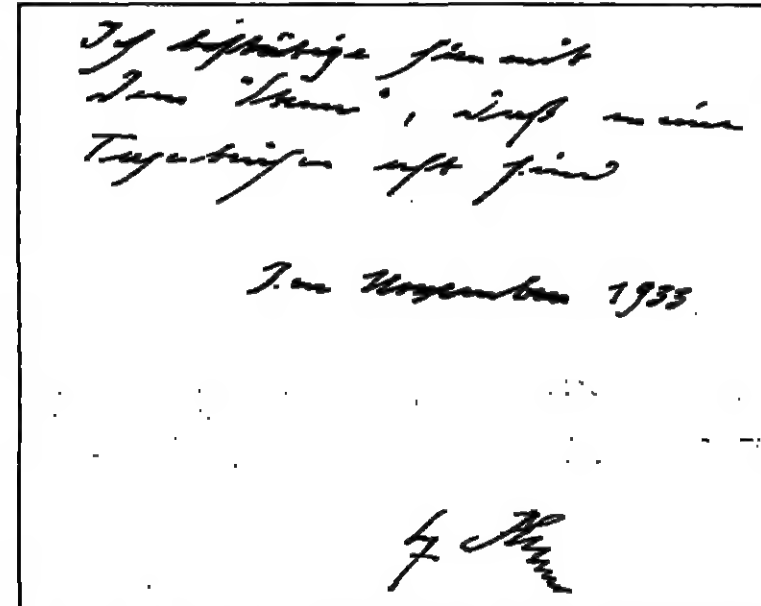 Ich bestätige hiermit
dem "Stern", daß meine
Tagebücher echt sind
Im November 1933